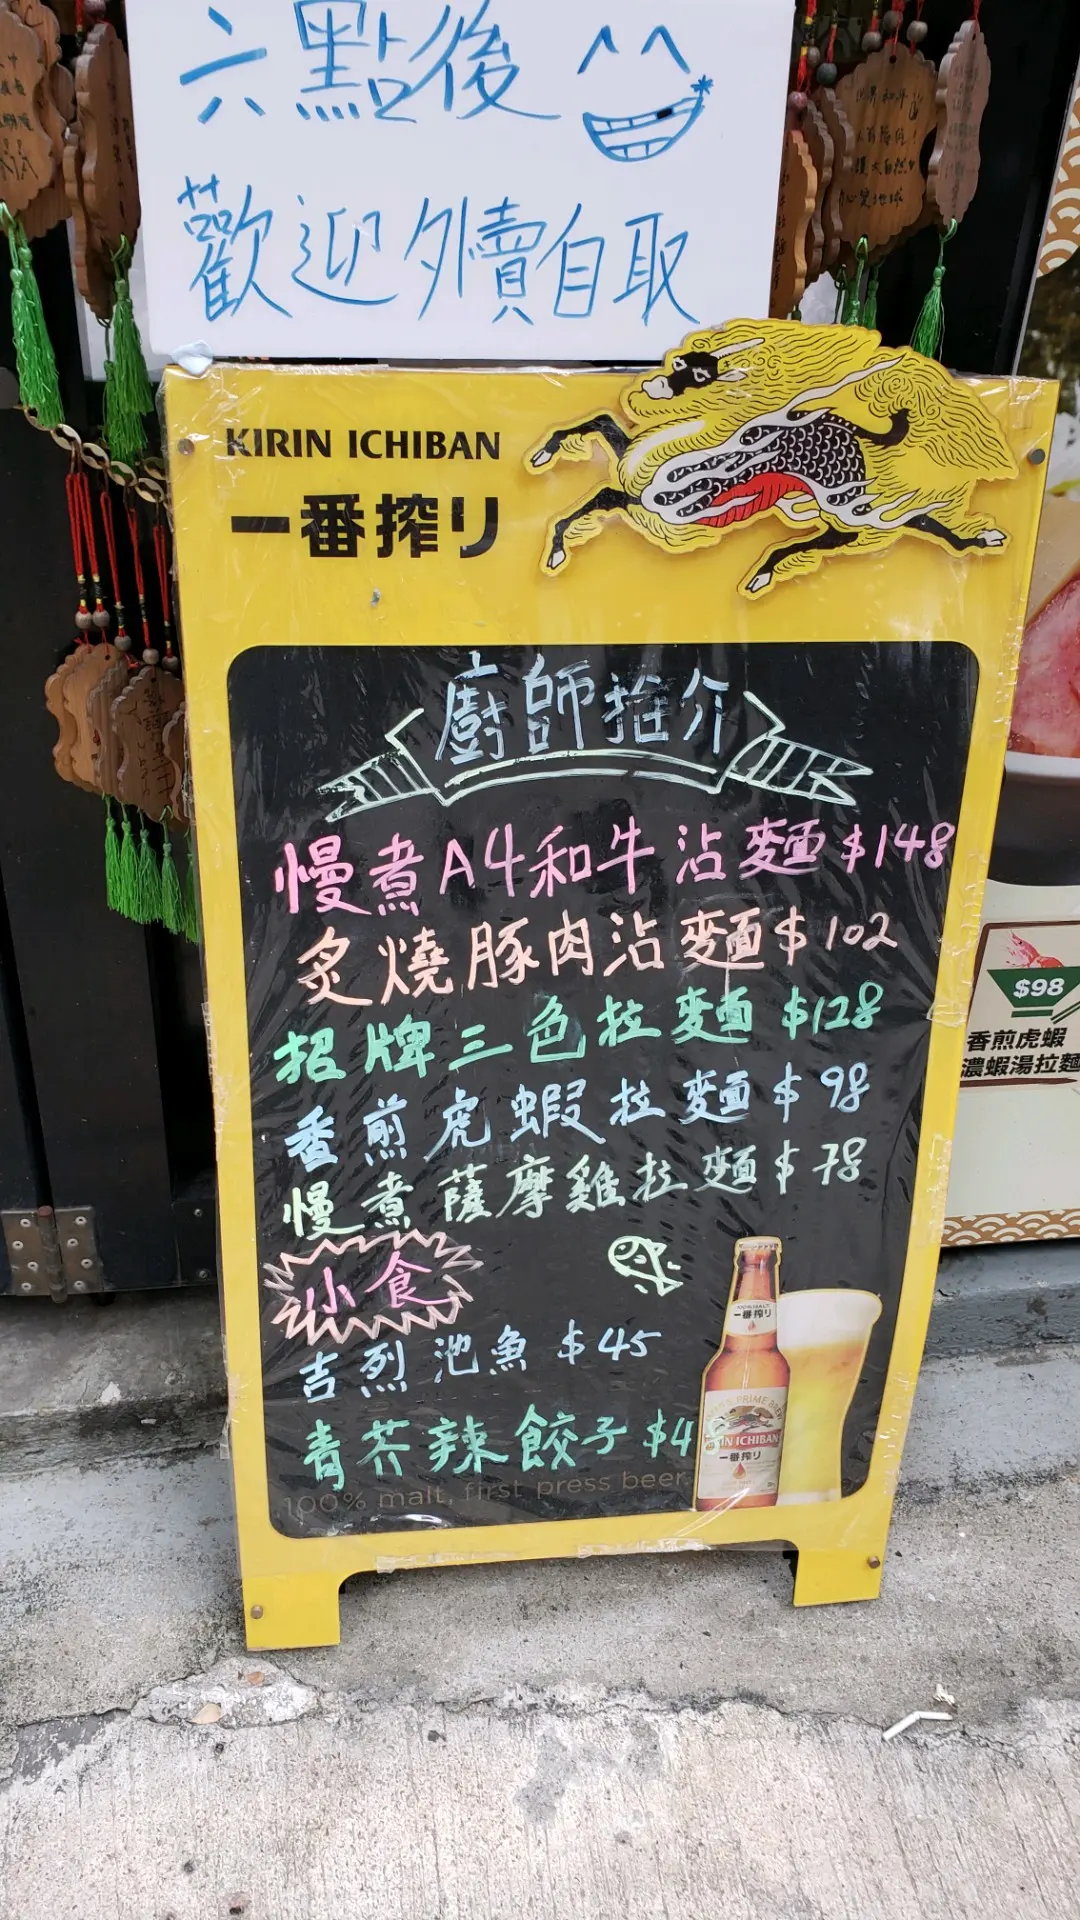 六點後
歡迎外賣自取
KIRIN ICHIBAN
一番搾り
廚師推介
慢煮A4和牛沾麵 $148
炙燒豚肉沾麵 $102
招牌三色拉麵 $128
香煎虎蝦拉麵 $98
慢煮薩摩雞拉麵 $78
小食
吉烈池魚 $45
青芥辣餃子 $4
100% malt, first press beer
一番搾り
KIRIN ICHIBAN
一番搾り
$98
香煎虎蝦
濃蝦湯拉麵